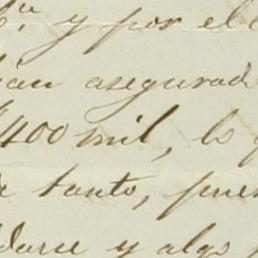 y por el
asegurad
400 mil, lo
tanto, pues
darse y algo